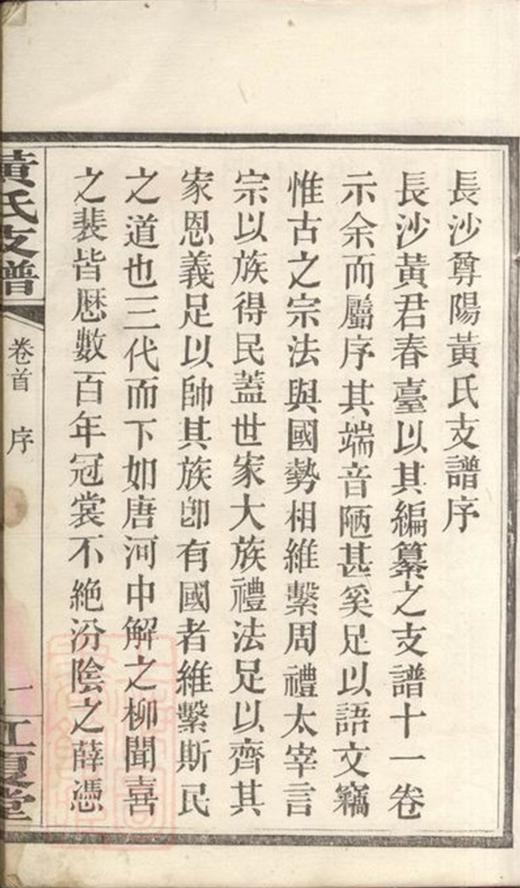 長沙尊陽黃氏支譜序
長沙黃君春臺以其編纂之支譜十一卷
示余而屬序其端音陋甚奚足以語文竊
惟古之宗法與國勢相維繫周禮太宰言
宗以族得民蓋世家大族禮法足以齊其
家恩義足以帥其族卽有國者維繫斯民
之道也三代而下如唐河中解之柳聞喜
之裴皆歷數百年冠裳不絶汾陰之薛憑
黃氏支譜
卷首 序
一
江夏堂